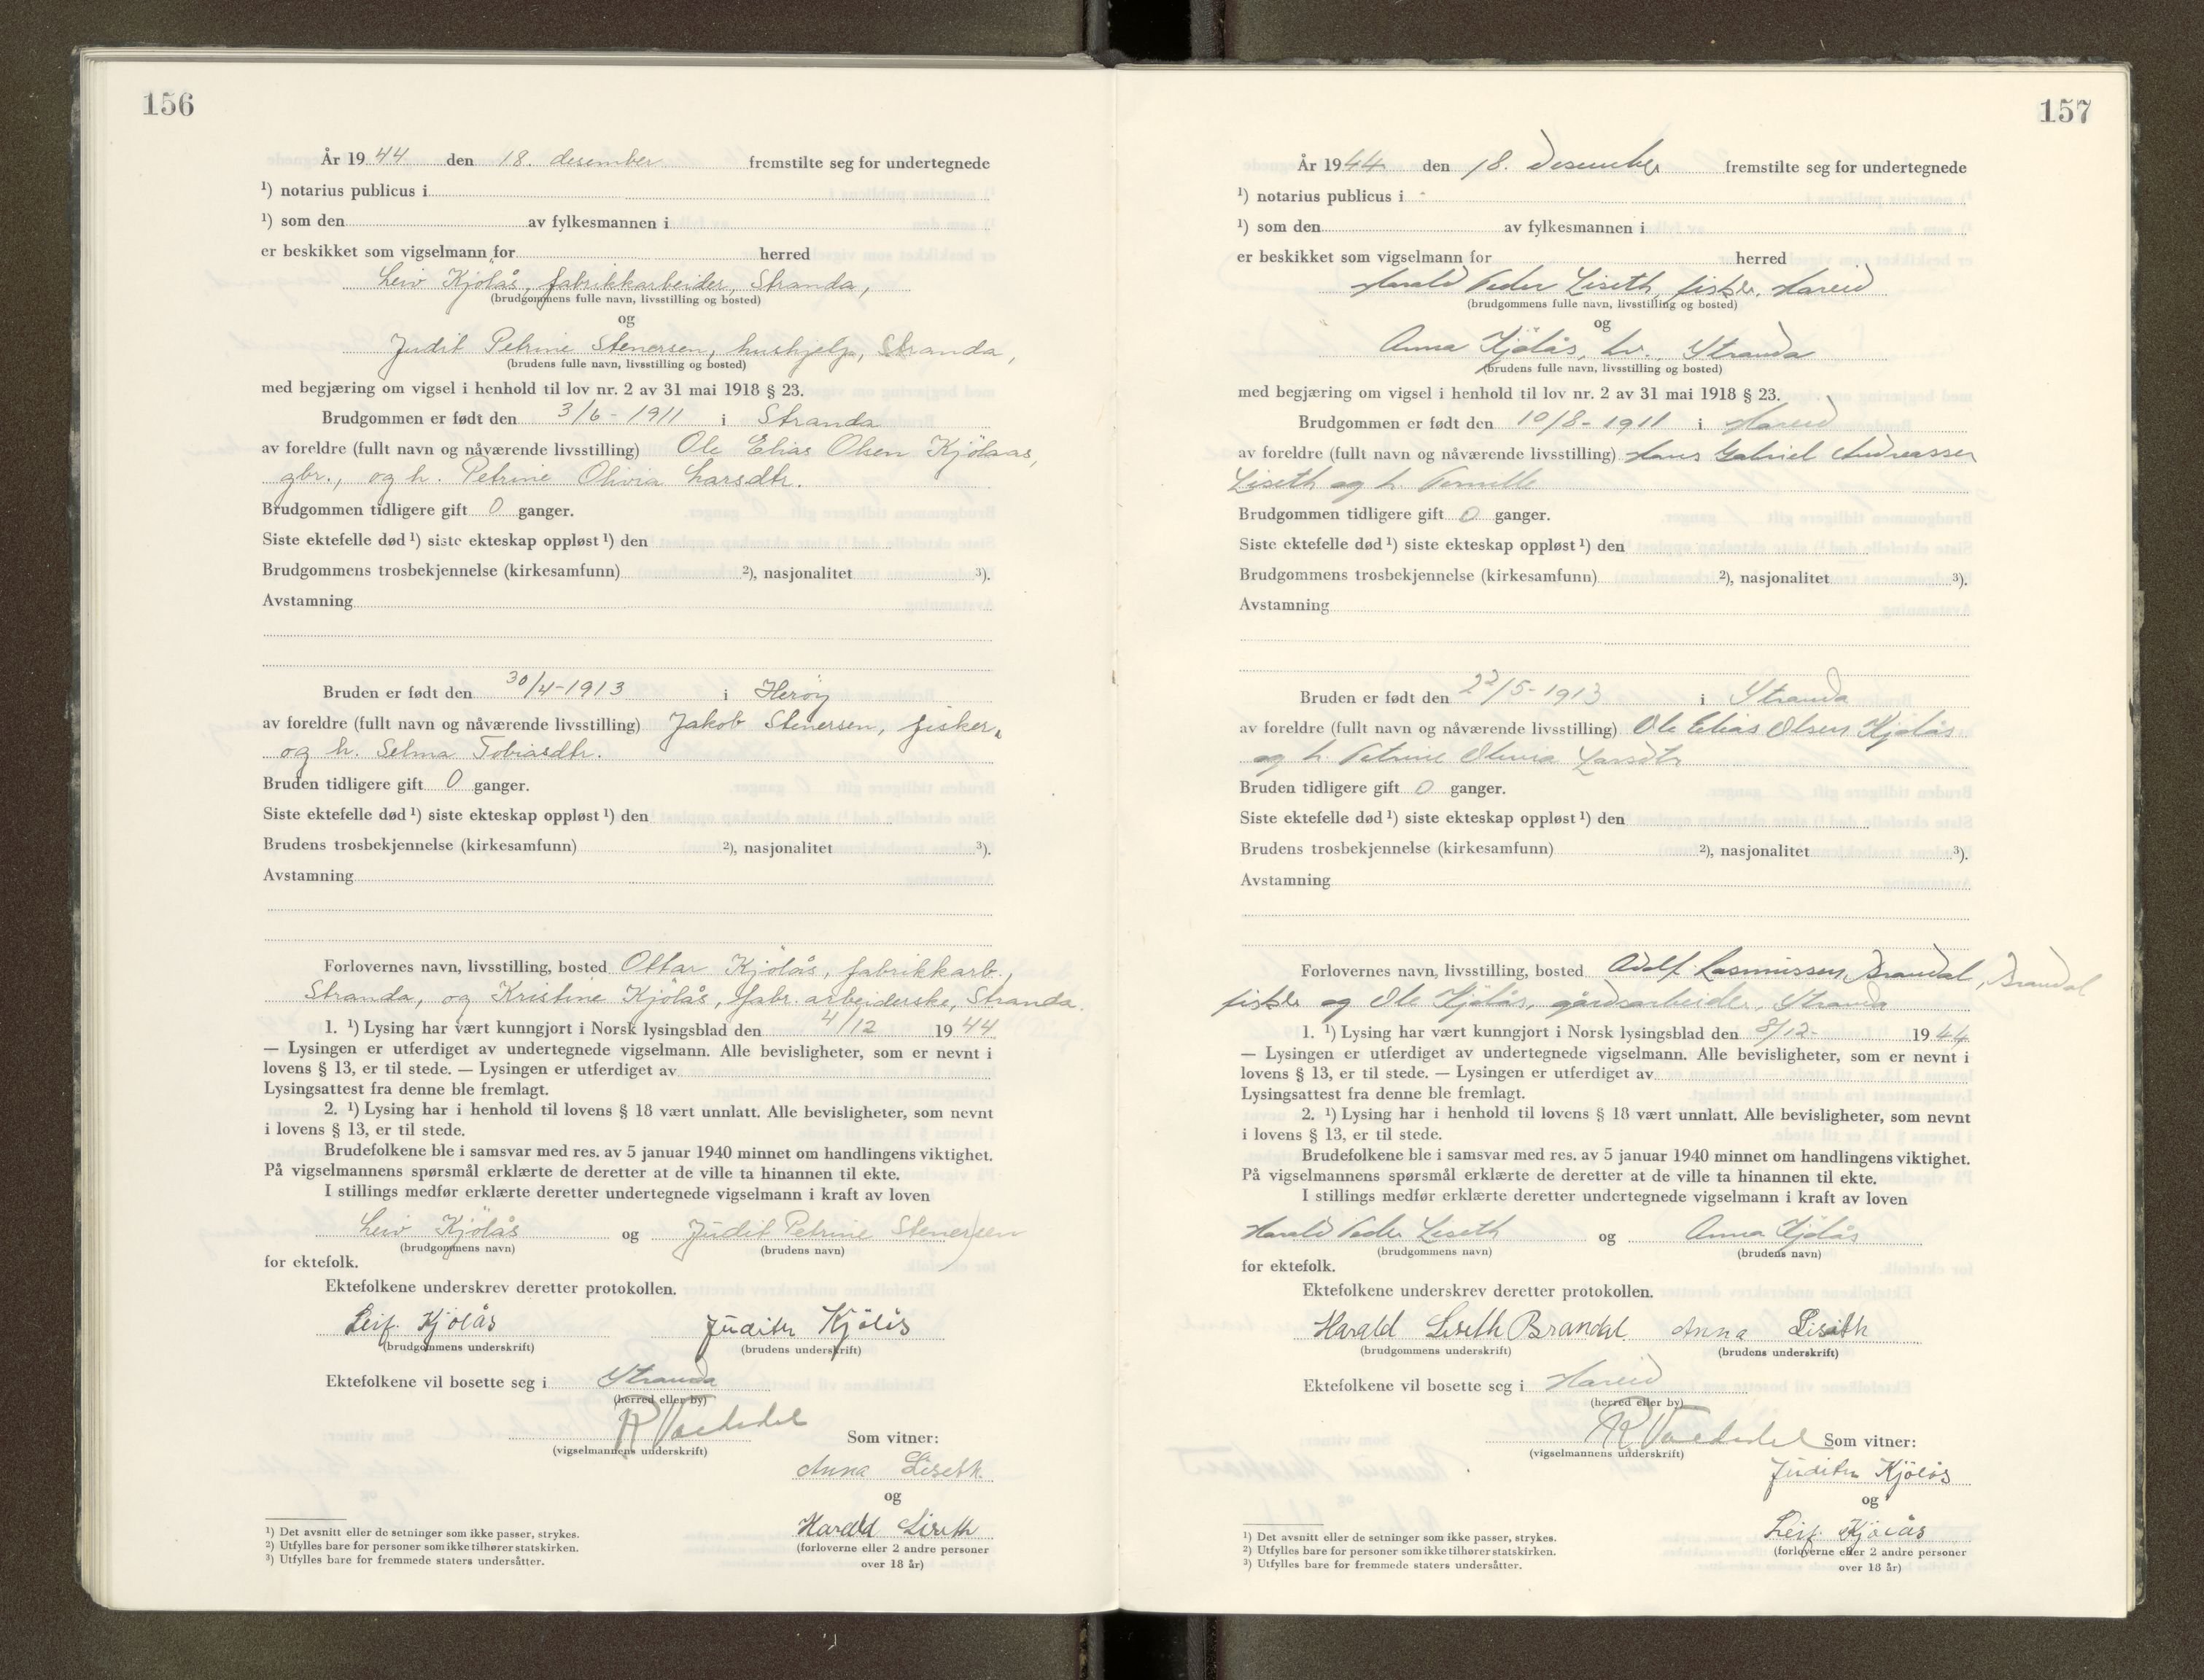 156
År 1944 den 18. desember fremstilte seg for undertegnede
¹) notarius publicus i
¹) som den av fylkesmannen i
er beskikket som vigselmann for herred
Leiv Kjölås, fabrikkarbeider, Stranda,
(brudgommens fulle navn, livsstilling og bosted)
og
Judit Petrine Stenersen, hushjelp, Stranda,
(brudens fulle navn, livsstilling og bosted)
med begjæring om vigsel i henhold til lov nr. 2 av 31 mai 1918 § 23.
Brudgommen er født den 3/6 - 1911 i Stranda
av foreldre (fullt navn og nåværende livsstilling) Ole Elias Olsen Kjölaas,
gbr., og h. Petrine Olivia Larsdtr.
Brudgommen tidligere gift 0 ganger.
Siste ektefelle død ¹) siste ekteskap oppløst ¹) den
Brudgommens trosbekjennelse (kirkesamfunn) ²), nasjonalitet ³).
Avstamning
Bruden er født den 30/4-1913 i Heröy
av foreldre (fullt navn og nåværende livsstilling) Jakob Stenersen, fisker,
og h. Selma Tobiasdtr.
Bruden tidligere gift 0 ganger.
Siste ektefelle død ¹) siste ekteskap oppløst ¹) den
Brudens trosbekjennelse (kirkesamfunn) ²), nasjonalitet ³).
Avstamning
Forlovernes navn, livsstilling, bosted Ottar Kjölås, fabrikkarb.,
Stranda, og Kristine Kjölås, fabr. arbeiderske, Stranda.
1. ¹) Lysing har vært kunngjort i Norsk lysingsblad den 4/12 1944
— Lysingen er utferdiget av undertegnede vigselmann. Alle bevisligheter, som er nevnt i
lovens § 13, er til stede. — Lysingen er utferdiget av
Lysingsattest fra denne ble fremlagt.
2. ¹) Lysing har i henhold til lovens § 18 vært unnlatt. Alle bevisligheter, som nevnt
i lovens § 13, er til stede.
Brudefolkene ble i samsvar med res. av 5 januar 1940 minnet om handlingens viktighet.
På vigselmannens spørsmål erklærte de deretter at de ville ta hinannen til ekte.
I stillings medfør erklærte deretter undertegnede vigselmann i kraft av loven
Leiv Kjölås og Judit Petrine Stenersen
(brudgommens navn) (brudens navn)
for ektefolk.
Ektefolkene underskrev deretter protokollen.
Leif. Kjölås Judith Kjölås
(brudgommens underskrift) (brudens underskrift)
Ektefolkene vil bosette seg i Stranda
(herred eller by)
(vigselmannens underskrift) Som vitner:
Anna Liseth
og
Harald Liseth
(forloverne eller 2 andre personer
over 18 år)
¹) Det avsnitt eller de setninger som ikke passer, strykes.
²) Utfylles bare for personer som ikke tilhører statskirken.
³) Utfylles bare for fremmede staters undersåtter.
157
År 1944 den 18. desember fremstilte seg for undertegnede
¹) notarius publicus i -
¹) som den av fylkesmannen i
er beskikket som vigselmann for herred
Harald Peder Liseth, fisker, Hareid
(brudgommens fulle navn, livsstilling og bosted)
og
Anna Kjölås, hv., Stranda
(brudens fulle navn, livsstilling og bosted)
med begjæring om vigsel i henhold til lov nr. 2 av 31 mai 1918 § 23.
Brudgommen er født den 10/8 - 1911 i Hareid
av foreldre (fullt navn og nåværende livsstilling) Hans Gabriel Andreassen
Liseth og h. Pernille
Brudgommen tidligere gift 0 ganger.
Siste ektefelle død ¹) siste ekteskap oppløst ¹) den
Brudgommens trosbekjennelse (kirkesamfunn) ²), nasjonalitet ³).
Avstamning
Bruden er født den 22/5 - 1913 i Stranda
av foreldre (fullt navn og nåværende livsstilling) Ole Elias Olsen Kjölås
og h. Petrine Olivia Larsdtr
Bruden tidligere gift 0 ganger.
Siste ektefelle død ¹) siste ekteskap oppløst ¹) den
Brudens trosbekjennelse (kirkesamfunn) ²), nasjonalitet ³).
Avstamning
Forlovernes navn, livsstilling, bosted Adolf Rasmussen Brandal, Brandal
fisker og Ole Kjölås, gårdsarbeider, Stranda
1. ¹) Lysing har vært kunngjort i Norsk lysingsblad den 8/12- 1944
— Lysingen er utferdiget av undertegnede vigselmann. Alle bevisligheter, som er nevnt i
lovens § 13, er til stede. — Lysingen er utferdiget av
Lysingsattest fra denne ble fremlagt.
2. ¹) Lysing har i henhold til lovens § 18 vært unnlatt. Alle bevisligheter, som nevnt
i lovens § 13, er til stede.
Brudefolkene ble i samsvar med res. av 5 januar 1940 minnet om handlingens viktighet.
På vigselmannens spørsmål erklærte de deretter at de ville ta hinannen til ekte.
I stillings medfør erklærte deretter undertegnede vigselmann i kraft av loven
Harald Peder Liseth og Anna Kjölås
(brudgommens navn) (brudens navn)
for ektefolk.
Ektefolkene underskrev deretter protokollen.
Harald Liseth Brandal Anna Liseth
(brudgommens underskrift) (brudens underskrift)
Ektefolkene vil bosette seg i Hareid
(herred eller by)
(vigselmannens underskrift) Som vitner:
Judith Kjölås
og
Leif. Kjölås
(forloverne eller 2 andre personer
over 18 år)
¹) Det avsnitt eller de setninger som ikke passer, strykes.
²) Utfylles bare for personer som ikke tilhører statskirken.
³) Utfylles bare for fremmede staters undersåtter.